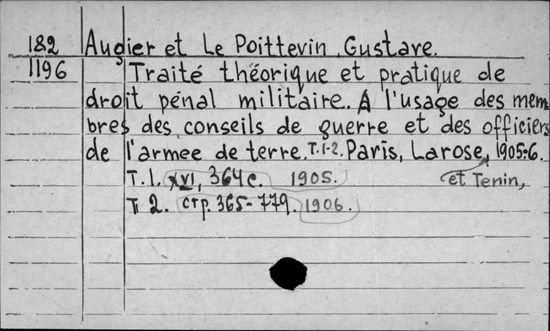 182 Augier et Le Poittevin, Gustave.
1196 Traité théorique et pratique de
droit pénal militaire. A l'usage des mem
bres des conseils de guerre et des officiers
de l'armee de terre. T. 1-2. Paris, Larose, 1905-6.
et Tenin,
T. 1. XVI, 364 c. 1905.
T. 2. стр. 365-779. 1906.